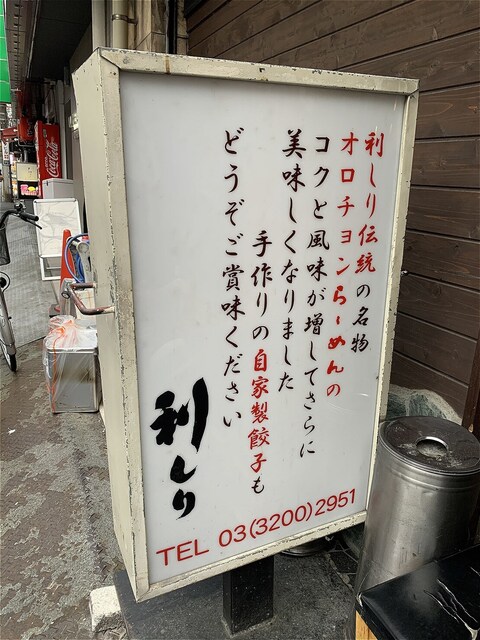 利しり伝統の名物
オロチョンらーめんの
コクと風味が増してさらに
美味しくなりました
手作りの自家製餃子も
どうぞご賞味ください
利しり
TEL 03(3200)2951
Coca-Cola